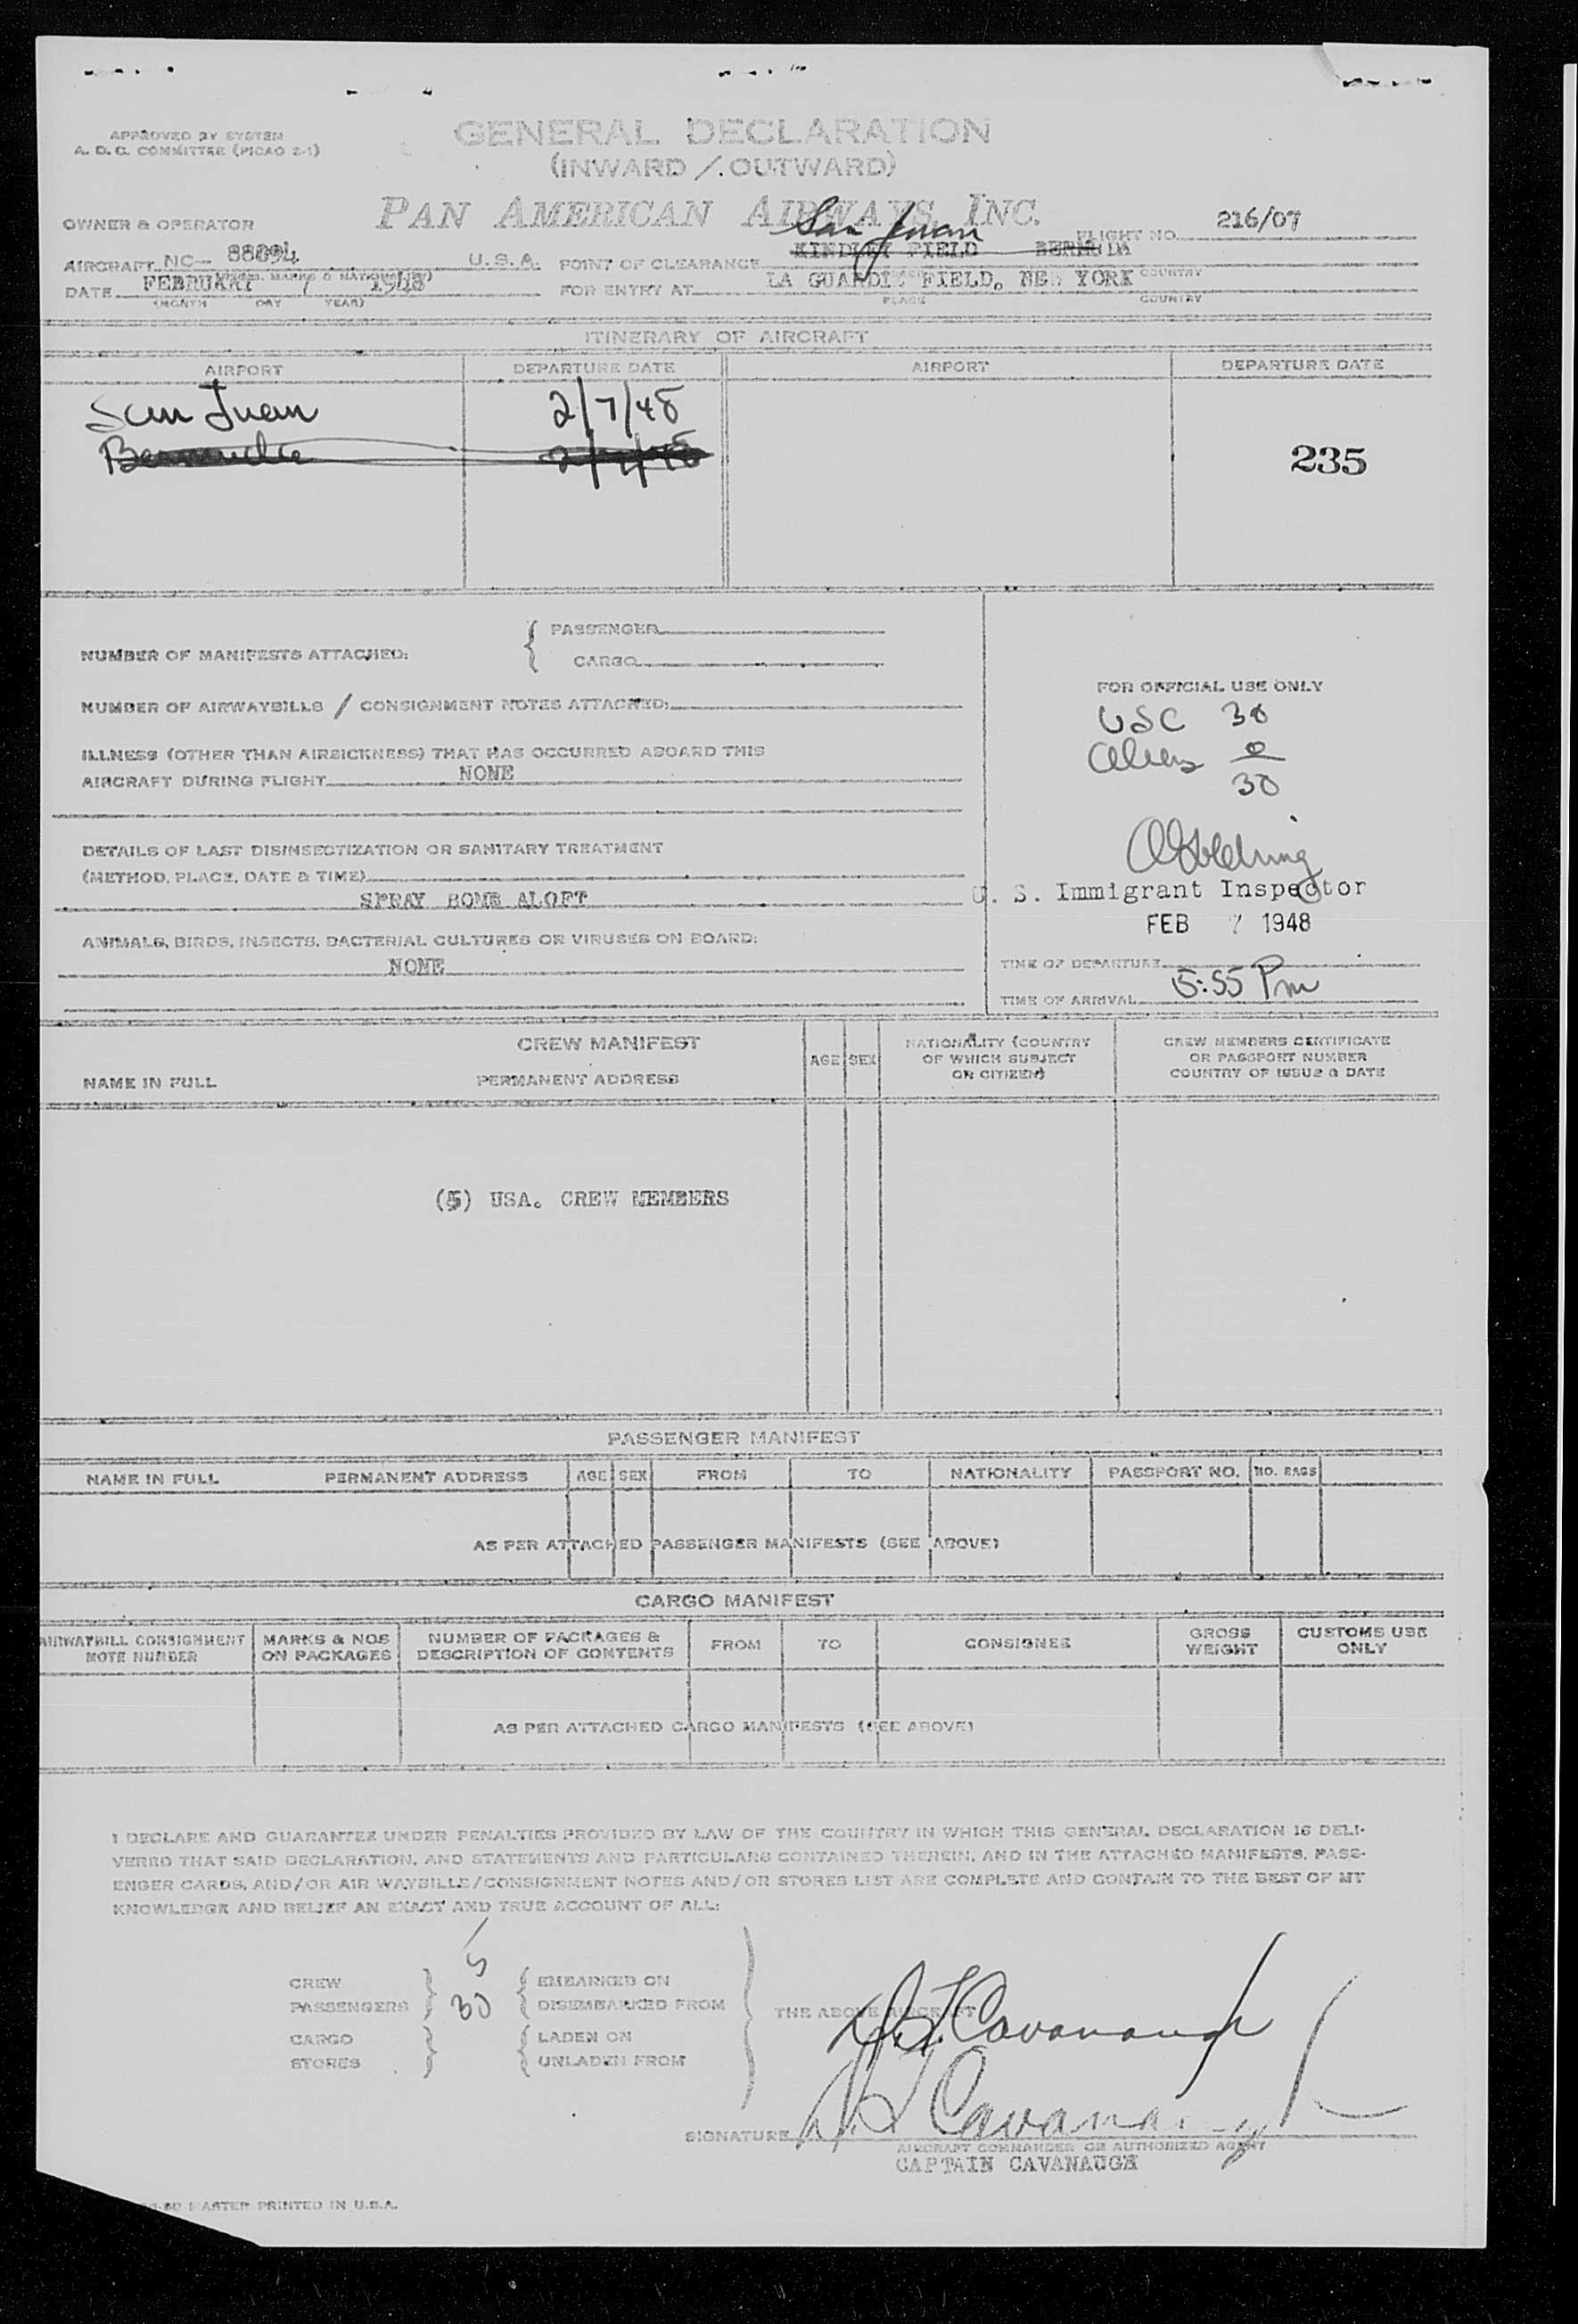 APPROVED BY SYSTEM
A. D. C. COMMITTEE (PICAO 2-1)
GENERAL DECLARATION
(INWARD / OUTWARD)
OWNER & OPERATOR PAN AMERICAN AIRWAYS, INC.
San Juan
FLIGHT NO. 216/07
AIRCRAFT NC- 88894 U.S.A. POINT OF CLEARANCE KINDLEY FIELD BERMUDA
DATE FEBRUARY 7 1948 FOR ENTRY AT LA GUARDIA FIELD, NEW YORK COUNTRY
(MONTH DAY YEAR) PLACE COUNTRY
ITINERARY OF AIRCRAFT
AIRPORT DEPARTURE DATE AIRPORT DEPARTURE DATE
San Juan 2/7/48
Bermuda
235
NUMBER OF MANIFESTS ATTACHED: { PASSENGER
CARGO
NUMBER OF AIRWAYBILLS / CONSIGNMENT NOTES ATTACHED:
ILLNESS (OTHER THAN AIRSICKNESS) THAT HAS OCCURRED ABOARD THIS
AIRCRAFT DURING FLIGHT NONE
DETAILS OF LAST DISINSECTIZATION OR SANITARY TREATMENT
(METHOD, PLACE, DATE & TIME)
SPRAY BOMB ALOFT
ANIMALS, BIRDS, INSECTS, BACTERIAL CULTURES OR VIRUSES ON BOARD:
NONE
FOR OFFICIAL USE ONLY
USC 30
Aliens 0
30
U. S. Immigrant Inspector
FEB 7 1948
TIME OF DEPARTURE
TIME OF ARRIVAL 5:55 Pm
CREW MANIFEST
NAME IN FULL PERMANENT ADDRESS AGE SEX NATIONALITY (COUNTRY OF WHICH SUBJECT OR CITIZEN) CREW MEMBERS CERTIFICATE OR PASSPORT NUMBER COUNTRY OF ISSUE & DATE
(5) USA. CREW MEMBERS
PASSENGER MANIFEST
NAME IN FULL PERMANENT ADDRESS AGE SEX FROM TO NATIONALITY PASSPORT NO. NO. BAGS
AS PER ATTACHED PASSENGER MANIFESTS (SEE ABOVE)
CARGO MANIFEST
AIRWAYBILL CONSIGNMENT NOTE NUMBER MARKS & NOS ON PACKAGES NUMBER OF PACKAGES & DESCRIPTION OF CONTENTS FROM TO CONSIGNEE GROSS WEIGHT CUSTOMS USE ONLY
AS PER ATTACHED CARGO MANIFESTS (SEE ABOVE)
I DECLARE AND GUARANTEE UNDER PENALTIES PROVIDED BY LAW OF THE COUNTRY IN WHICH THIS GENERAL DECLARATION IS DELI-
VERED THAT SAID DECLARATION, AND STATEMENTS AND PARTICULARS CONTAINED THEREIN, AND IN THE ATTACHED MANIFESTS, PASS-
ENGER CARDS, AND/OR AIR WAYBILLS/CONSIGNMENT NOTES AND/OR STORES LIST ARE COMPLETE AND CONTAIN TO THE BEST OF MY
KNOWLEDGE AND BELIEF AN EXACT AND TRUE ACCOUNT OF ALL:
CREW 5 EMBARKED ON
PASSENGERS 30 DISEMBARKED FROM
CARGO LADEN ON
STORES UNLADEN FROM
THE ABOVE AIRCRAFT
Cavanaugh
SIGNATURE Cavanaugh
AIRCRAFT COMMANDER OR AUTHORIZED AGENT
CAPTAIN CAVANAUGH
MASTER PRINTED IN U.S.A.